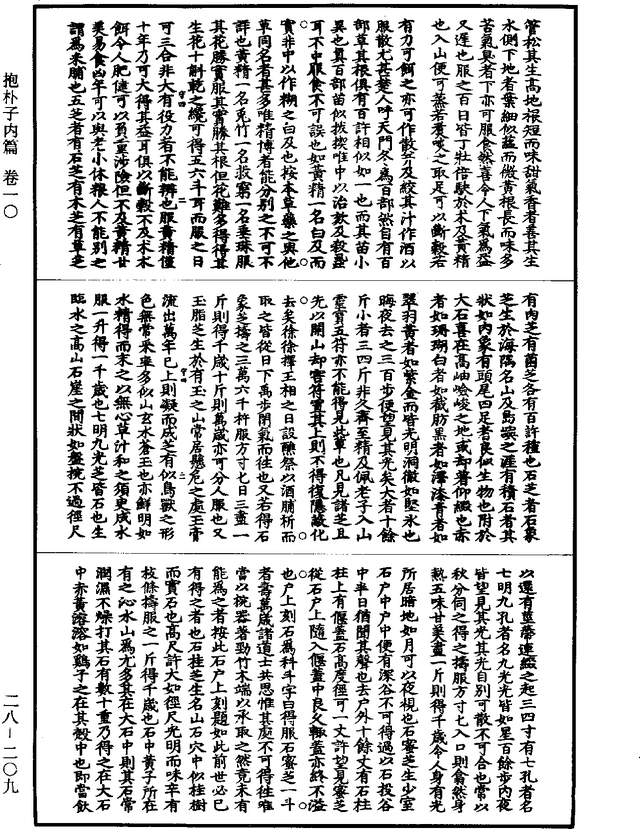 管松其生高地根短而味甜氣香者善其生
水側下地者葉細似蘊而微黃根長而味多
苦氣臭者下亦可服食然喜令人下氣為益
又遲也服之百日皆丁壯倍駛於朮及黃精
也入山便可蒸若煮啖之取足可以斷穀若
有力可餌之亦可作散并及絞其汁作酒以
服散尤甚楚人呼天門冬為百部然自有百
部草其根俱有百許相似如一也而其苗小
異也真百部苗似拔揳唯中以治欬及殺蝨
耳不中服食不可誤也如黃精一名白及而
實非中以作糊之白及也按本草藥之與他
草同名者甚多唯精博者能分別之不可不
詳也黃精一名兔竹一名救窮一名垂珠服
其花勝其實服其實勝其根但花難多得得其
生花十斛乾之纔可得五六斗耳而服之日
可三合非大有役力者不能辨也服黃精僅
十年乃可大得其益耳俱以斷穀不及朮朮
餌令人肥健可以負重涉險但不及黃精甘
美易食凶年可以與老小休糧人不能別之
謂為米脯也五芝者有石芝有木芝有草芝
有肉芝有菌芝各有百許種也石芝者石象
芝生於海隅名山及島嶼之涯有積石者其
狀如肉象有頭尾四足者良似生物也附於
大石喜在高岫嶮峻之地或卻著仰綴也赤
者如珊瑚白者如截肪黑者如澤漆青者如
翠羽黃者如紫金而皆光明洞徹如堅冰也
晦夜去之三百步便望見其光矣大者十餘
斤小者三四斤非久齋至精及佩老子入山
靈寶五符亦不能得見此輩也凡見諸芝且
先以開山卻害符置其上則不得復隱蔽化
去矣徐徐擇王相之日設醮祭以酒脯祈而
取之皆從日下禹步閉氣而往也又若得石
象芝擣之三萬六千杵服方寸七日三盡一
斤則得千歲十斤則萬歲亦可分人服也又
玉脂芝生於有玉之山常居懸危之處玉膏
流出萬年已上則凝而成芝有似鳥獸之形
色無常采率多似山玄水蒼玉也亦鮮明如
水精得而末之以無心草汁和之須臾成水
服一升得一千歲也七明九光芝皆石也生
臨水之高山石崖之間狀如盤椀不過徑尺
以還有莖蔕連綴之起三四寸有七孔者名
七明九孔者名九光光皆如星百餘步內夜
皆望見其光其光自別可散不可合也常以
秋分伺之得之擣服方寸匕入口則翕然身
熱五味甘美盡一斤則得千歲令人身有光
所居暗地如月可以夜視也石蜜芝生少室
石戶中戶中便有深谷不可得過以石投谷
中半日猶聞其聲也去戶外十餘丈有石柱
柱上有偃蓋石高度徑可一丈許望見蜜芝
從石戶上隨入偃蓋中良久輒有一滴亦終不溢
也戶上刻石為科斗字曰得服石蜜芝一斗
者壽萬歲諸道士共思惟其處不可得往唯
當以椀器著勁竹木端以承取之然竟未有
能為之者按此石戶上刻題如此前世必已
有得之者也石桂芝生名山石穴中似桂樹
而實石也高尺許大如徑尺光明而味辛有
枝條擣服之一斤得千歲也石中黃子所在
有之沁水山為尤多其在大石中則其石常
潤濕不燥打其石有數十重乃得之在大石
中赤黃溶溶如雞子之在其殼中也即當飲
抱朴子內篇 卷一〇
二八-二〇九